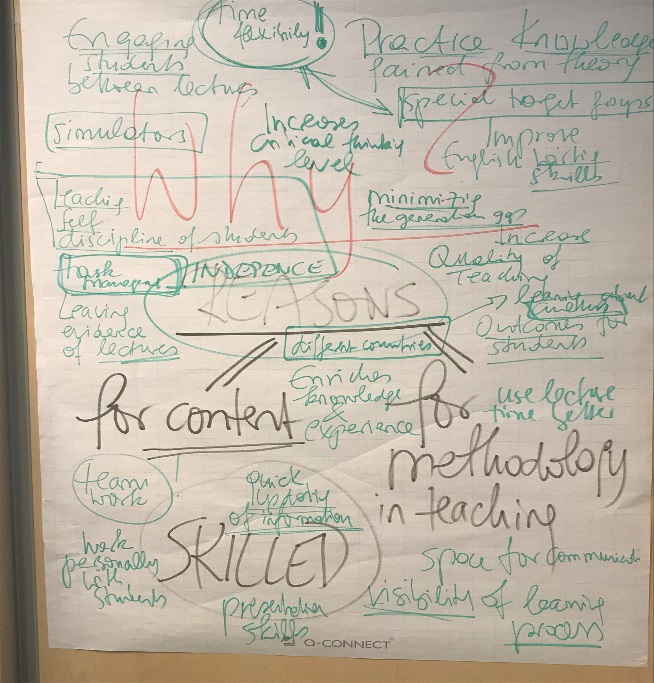 time
flexibility!
Engaging
students
between lectures
Practice Knowledge
gained from theory
special target groups
simulators
Increases
critical thinking
level
Improve
English
skills
Why?
Teaching
self
discipline of students
minimizing
the generation gap
Increase
Quality of
Teaching
INDEPENCE
REASONS
Leaving
evidence
of lectures
different countries
Outcomes for
students
Enriches
knowledge
&
experience
use lecture
time better
for content
for
methodology
in teaching
team
work
quick
of information
SKILLED
work
personally
with
students
presentation
skills
space for communicati
visibility of learning
process
Q-CONNECT